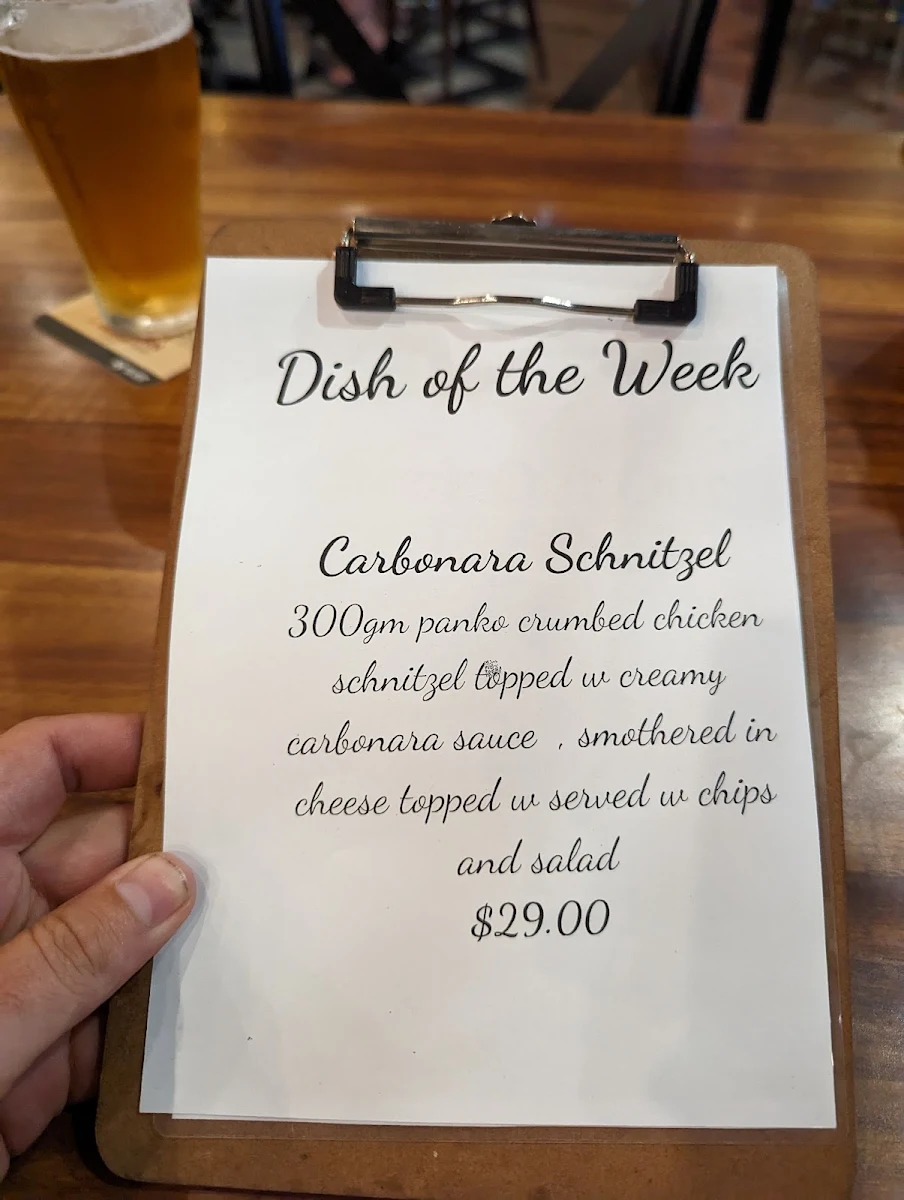 Dish of the Week
Carbonara Schnitzel
300gm panko crumbed chicken
schnitzel topped w creamy
carbonara sauce , smothered in
cheese topped w served w chips
and salad
$29.00